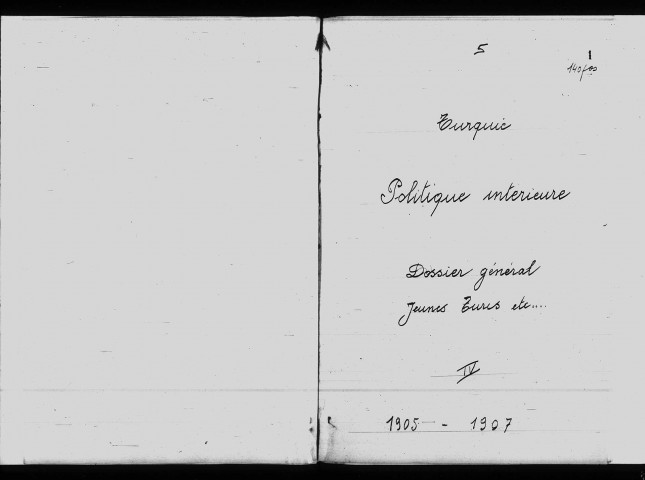 5
1
140 fos
Turquie
Politique interieure
Dossier général
Jeunes Turcs etc....
IV
1905 - 1907